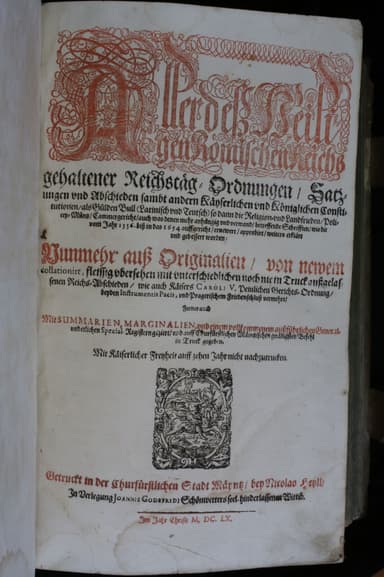 Aller deß Heili
gen Römischen Reichs
gehaltener Reichstäg, Ordnungen / Satz-
ungen vnd Abschieden sambt andern Käyserlichen vnd Königlichen Consti-
tutionen / als Gülden Bull (Latinisch vnd Teutsch) so dann die Religion- vnd Landfrieden / Poli-
cey- Müntz / Cammergericht / auch was denen mehr anhängig vnd verwand / betreffende Schrifften / wie die
vom Jahr 1356. biß in das 1654 auffgericht / ernewert / approbirt / weiters erklärt
vnd gebessert worden:
Nunmehr auß Originalien / von newem
collationirt, fleissig vbersehen mit vnterschiedlichen noch nie in Truck außgelas-
senen Reichs-Abschieden / wie auch Käisers CAROLI V. Peinlichen Gerichts-Ordnung /
beyden Instrumentis Pacis, vnd Pragerischem Friedenschluß vermehrt /
Ferner auch
Mit SUMMARIEN, MARGINALIEN, vnd einem vollkommenen außführlichen General-
vnd etlichen Special-Registern geziert / vnd auff Churfürstlichen Mäyntzischen gnädigsten Befehl
in Truck gegeben.
Mit Käiserlicher Freyheit auff zehen Jahr nicht nachzutrucken.
Getruckt in der Churfürstlichen Stadt Mäyntz / bey Nicolao Heyll /
In Verlegung JOANNIS GODEFRIDI Schönwetters seel. hinderlassenen Wittib.
Im Jahr Christi M. DC. LX.